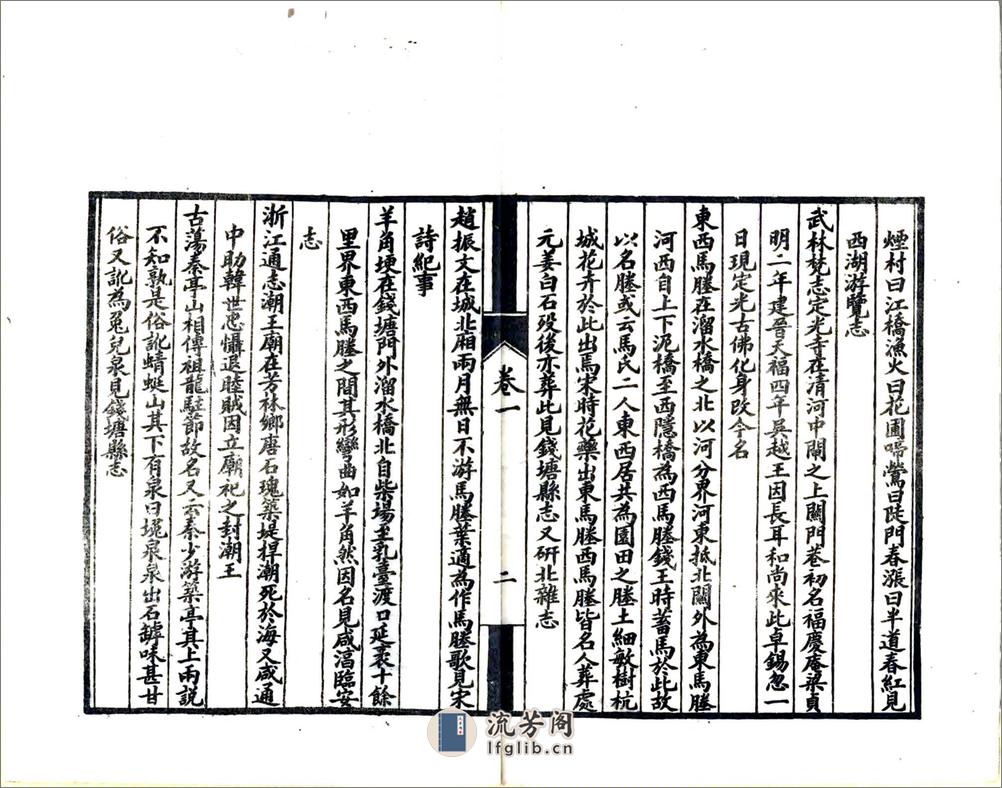 煙村曰江橋漁火曰花圃啼鶯曰陡門春漲曰半道春紅見
西湖游覽志
武林梵志定光寺在清河中閘之上闗門巷初名福慶庵梁貞
明二年建晉天福四年吳越王因長耳和尚來此卓錫忽一
日現定光古佛化身改今名
東西馬塍在溜水橋之北以河分界河東抵北闗外為東馬塍
河西自上下泥橋至西隱橋為西馬塍錢王時蓄馬於此故
以名塍或云馬氏二人東西居共為園田之塍土細敏樹杭
城花卉於此出焉宋時花藥出東馬塍西馬塍皆名人葬處
元姜白石歿後亦葬此見錢塘縣志又研北雜志
卷一
二
趙振文在城北廂兩月無日不游馬塍葉適為作馬塍歌見宋
詩紀事
羊角埂在錢塘門外溜水橋北自柴場至乳臺渡口延袤十餘
里界東西馬塍之間其形彎曲如羊角然因名見咸淳臨安
志
浙江通志潮王廟在芳林鄉唐石瑰築堤捍潮死於海又咸通
中助韓世忠懾退睦賊因立廟祀之封潮王
古蕩秦亭山相傳祖龍駐節故名又云秦少游築亭其上兩說
不知孰是俗訛蜻蜓山其下有泉曰境泉泉出石罅味甚甘
俗又訛為兔兒泉見錢塘縣志
流芳阁
lfglib.cn